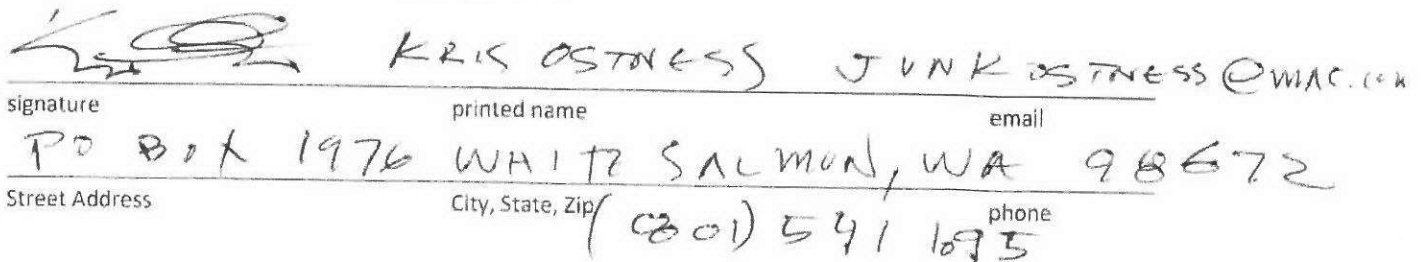 KRIS OSTNESS JUNKOSTNESS@MAC.COM
signature printed name email
PO BOX 1976 WHITE SALMON, WA 98672
Street Address City, State, Zip phone
(801) 541 1095